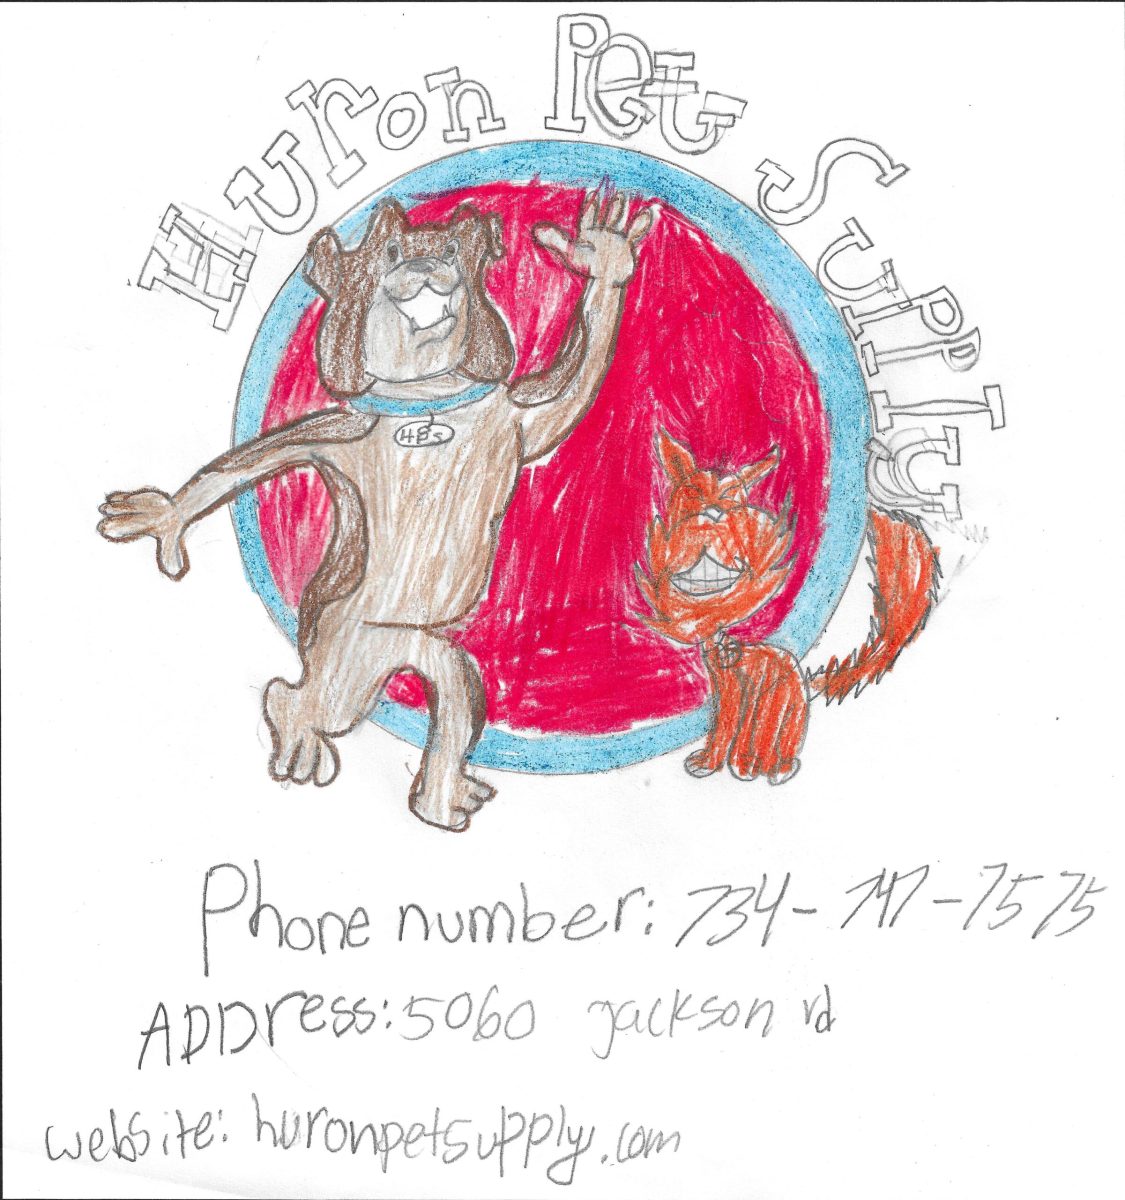 Huron Pet Supply
HPS
Phone number: 734-747-7575
ADDress: 5060 jackson rd
website: huronpetsupply.com